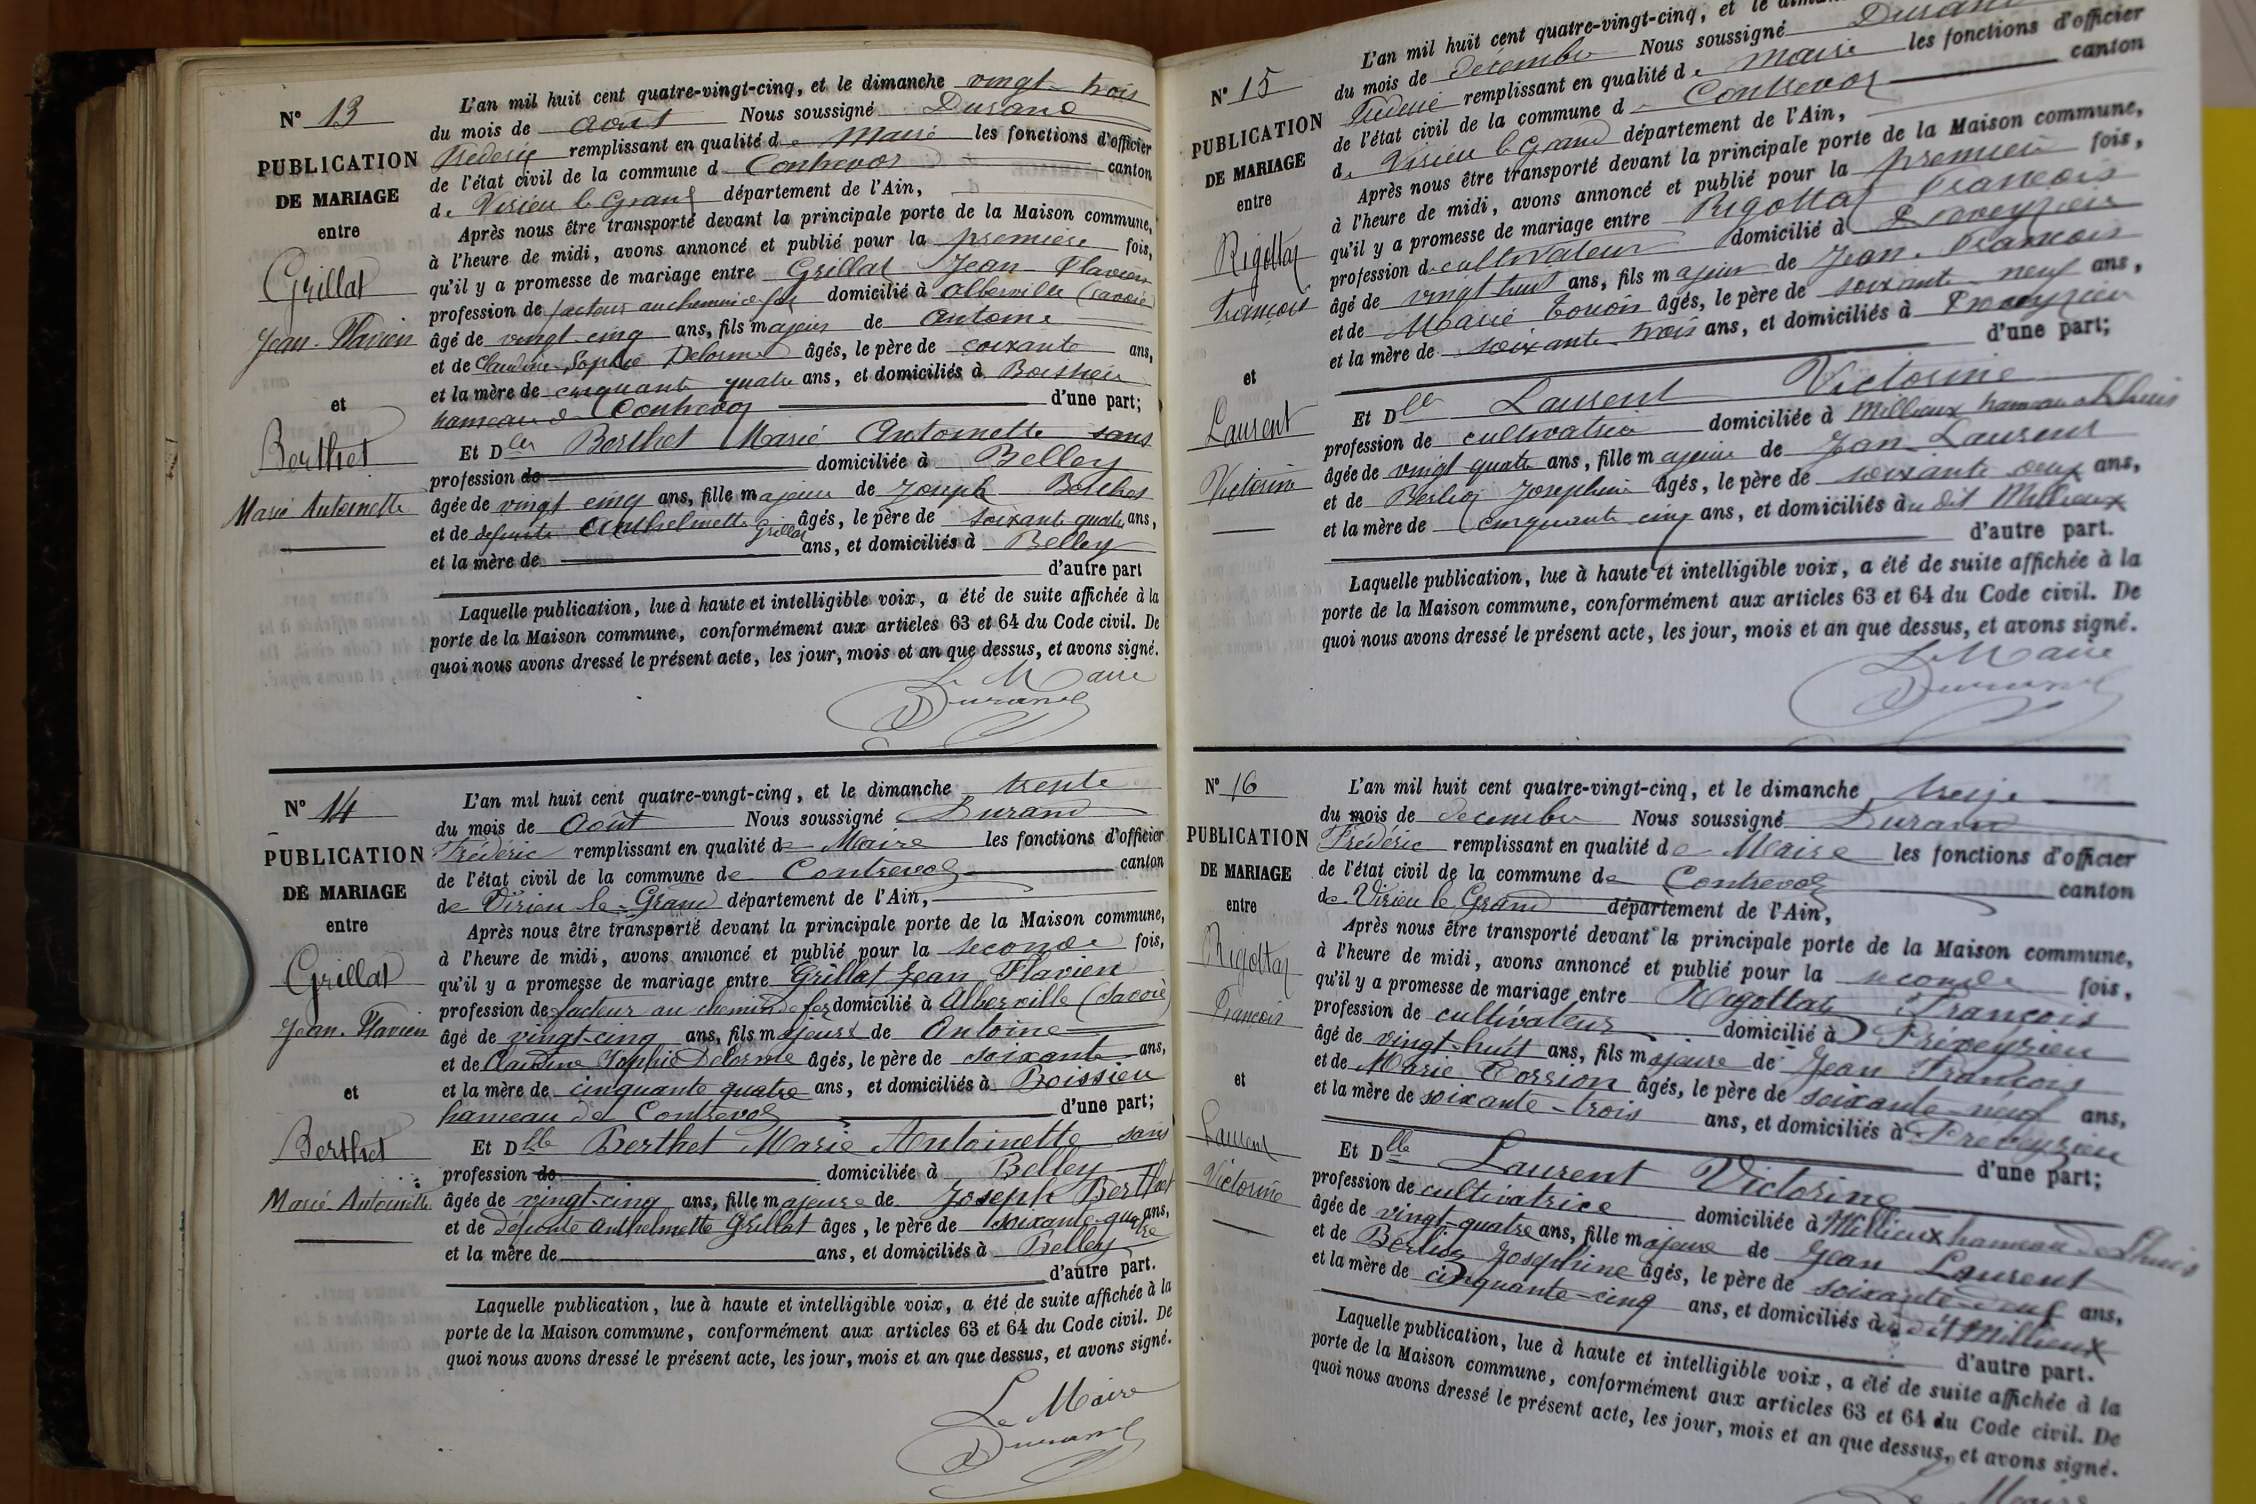 N° 13
PUBLICATION
DE MARIAGE
entre
Grillat
Jean-Flavien
et
Berthet
Marie Antoinette
L'an mil huit cent quatre-vingt-cinq, et le dimanche vingt-trois
du mois de Août Nous soussigné Durand
Frédéric remplissant en qualité de Maire les fonctions d'officier
de l'état civil de la commune d Contrevoz canton
de Virieu le Grand département de l'Ain,
Après nous être transporté devant la principale porte de la Maison commune,
à l'heure de midi, avons annoncé et publié pour la première fois,
qu'il y a promesse de mariage entre Grillat Jean-Flavien
profession de facteur au chemin de fer domicilié à Alberville (Savoie)
âgé de vingt-cinq ans, fils majeur de Antoine
et de Claudine-Sophie Delorme âgés, le père de soixante ans,
et la mère de cinquante quatre ans, et domiciliés à Boissieu
hameau de Contrevoz d'une part;
Et Dlle Berthet Marie Antoinette sans
profession de domiciliée à Belley
âgée de vingt cinq ans, fille majeure de Joseph Berthet
et de défunte Anthelmette Grillat âgés, le père de soixante quatre ans,
et la mère de ans, et domiciliés à Belley
d'autre part
Laquelle publication, lue à haute et intelligible voix, a été de suite affichée à la
porte de la Maison commune, conformément aux articles 63 et 64 du Code civil. De
quoi nous avons dressé le présent acte, les jour, mois et an que dessus, et avons signé.
Le Maire
Durand
N° 14
PUBLICATION
DE MARIAGE
entre
Grillat
Jean-Flavien
et
Berthet
Marie-Antoinette
L'an mil huit cent quatre-vingt-cinq, et le dimanche trente
du mois de Août Nous soussigné Durand
Frédéric remplissant en qualité de Maire les fonctions d'officier
de l'état civil de la commune de Contrevoz canton
de Virieu le Grand département de l'Ain,
Après nous être transporté devant la principale porte de la Maison commune,
à l'heure de midi, avons annoncé et publié pour la seconde fois,
qu'il y a promesse de mariage entre Grillat Jean Flavien
profession de facteur au chemin de fer domicilié à Alberville (Savoie)
âgé de vingt-cinq ans, fils majeur de Antoine
et de Claudine Sophie Delorme âgés, le père de soixante ans,
et la mère de cinquante quatre ans, et domiciliés à Boissieu
hameau de Contrevoz d'une part;
Et Dlle Berthet Marie Antoinette sans
profession de domiciliée à Belley
âgée de vingt-cinq ans, fille majeure de Joseph Berthet
et de défunte Anthelmette Grillat âgés, le père de soixante-quatre ans,
et la mère de ans, et domiciliés à Belley
d'autre part.
Laquelle publication, lue à haute et intelligible voix, a été de suite affichée à la
porte de la Maison commune, conformément aux articles 63 et 64 du Code civil. De
quoi nous avons dressé le présent acte, les jour, mois et an que dessus, et avons signé.
Le Maire
Durand
N° 15
PUBLICATION
DE MARIAGE
entre
Rigottaz
François
et
Laurent
Victorine
L'an mil huit cent quatre-vingt-cinq, et le
du mois de décembre Nous soussigné Durand
Frédéric remplissant en qualité de Maire les fonctions d'officier
de l'état civil de la commune de Contrevoz canton
de Virieu le Grand département de l'Ain,
Après nous être transporté devant la principale porte de la Maison commune,
à l'heure de midi, avons annoncé et publié pour la première fois,
qu'il y a promesse de mariage entre Rigottaz François
profession de cultivateur domicilié à Preveyzieu
âgé de vingt huit ans, fils majeur de Jean-François
et de Marie âgés, le père de soixante-neuf ans,
et la mère de soixante-trois ans, et domiciliés à Preveyzieu
d'une part;
Et Dlle Laurent Victorine
profession de cultivatrice domiciliée à Millieux hameau de Lhuis
âgée de vingt quatre ans, fille majeure de Jean Laurent
et de Berlioz Josephine âgés, le père de soixante deux ans,
et la mère de cinquante cinq ans, et domiciliés au dit Millieux
d'autre part.
Laquelle publication, lue à haute et intelligible voix, a été de suite affichée à la
porte de la Maison commune, conformément aux articles 63 et 64 du Code civil. De
quoi nous avons dressé le présent acte, les jour, mois et an que dessus, et avons signé.
Le Maire
Durand
N° 16
PUBLICATION
DE MARIAGE
entre
Rigottaz
François
et
Laurent
Victorine
L'an mil huit cent quatre-vingt-cinq, et le dimanche treize
du mois de décembre Nous soussigné Durand
Frédéric remplissant en qualité de Maire les fonctions d'officier
de l'état civil de la commune de Contrevoz canton
de Virieu le Grand département de l'Ain,
Après nous être transporté devant la principale porte de la Maison commune,
à l'heure de midi, avons annoncé et publié pour la seconde fois,
qu'il y a promesse de mariage entre Rigottaz François
profession de cultivateur domicilié à Préveyzieu
âgé de vingt-huit ans, fils majeure de Jean François
et de Marie âgés, le père de soixante-neuf ans,
et la mère de soixante-trois ans, et domiciliés à Préveyzieu
d'une part;
Et Dlle Laurent Victorine
profession de cultivatrice domiciliée à Millieux hameau de Lhuis
âgée de vingt-quatre ans, fille majeure de Jean Laurent
et de Berlioz Josephine âgés, le père de soixante-deux ans,
et la mère de cinquante-cinq ans, et domiciliés au dit Millieux
d'autre part.
Laquelle publication, lue à haute et intelligible voix, a été de suite affichée à la
porte de la Maison commune, conformément aux articles 63 et 64 du Code civil. De
quoi nous avons dressé le présent acte, les jour, mois et an que dessus, et avons signé.
Le Maire